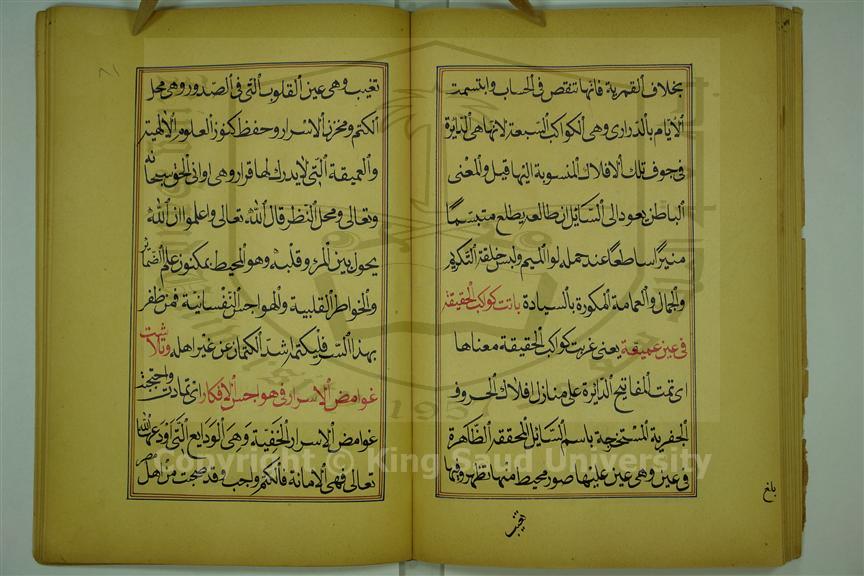 بخلاف القمرية فانها تنقص في الحساب وابتسمت
الايام بالدراري وهي الكواكب السبعة لانها هي الدائرة
في جوف تلك الافلاك المنسوبة اليها قيل والمعنى
الباطن يعود الى السائل ان طالعه يطلع متبسما
منيرا ساطعا عند حمله لواء الميم ولبس خلقة التكريم
والجمال والعمامة المكورة بالسيادة باتت كواكب الحقيقة
في عين عميقة يعني غربت كواكب الحقيقة معناها
اي تمت المفاتيح الدائرة على منازل افلاك الحروف
الجفرية المستخرجة باسم السائل المحققة الظاهرة
في عين وهي عين عليها صور محيط منها تظهر وفيها
تغيب
بلغ
٨١
تغيب وهي عين القلوب التي في الصدور وهي محل
الكتم ومخزن الاسرار وحفظ كنوز العلوم الالهية
والعميقة التي لا يدرك لها قرار وهي اواني الحق سبحانه
وتعالى ومحل النظر قال الله تعالى واعلموا ان الله
يحول بين المرء وقلبه وهو المحيط بمكنون علم الضمائر
والخواطر القلبية والهواجس النفسانية فمن ظفر
بهذا السر فليكتمه اشد الكتمان عن غير اهله وتلاشت
غوامض الاسرار في هواجس الافكار اي تمادت واحتجبت
غوامض الاسرار الخفية وهي الودايع التي اودعها الله
تعالى فهي الامانة فالكتم واجب وقد ضجت من اهل
مصر
1957
Copyright © King Saud University